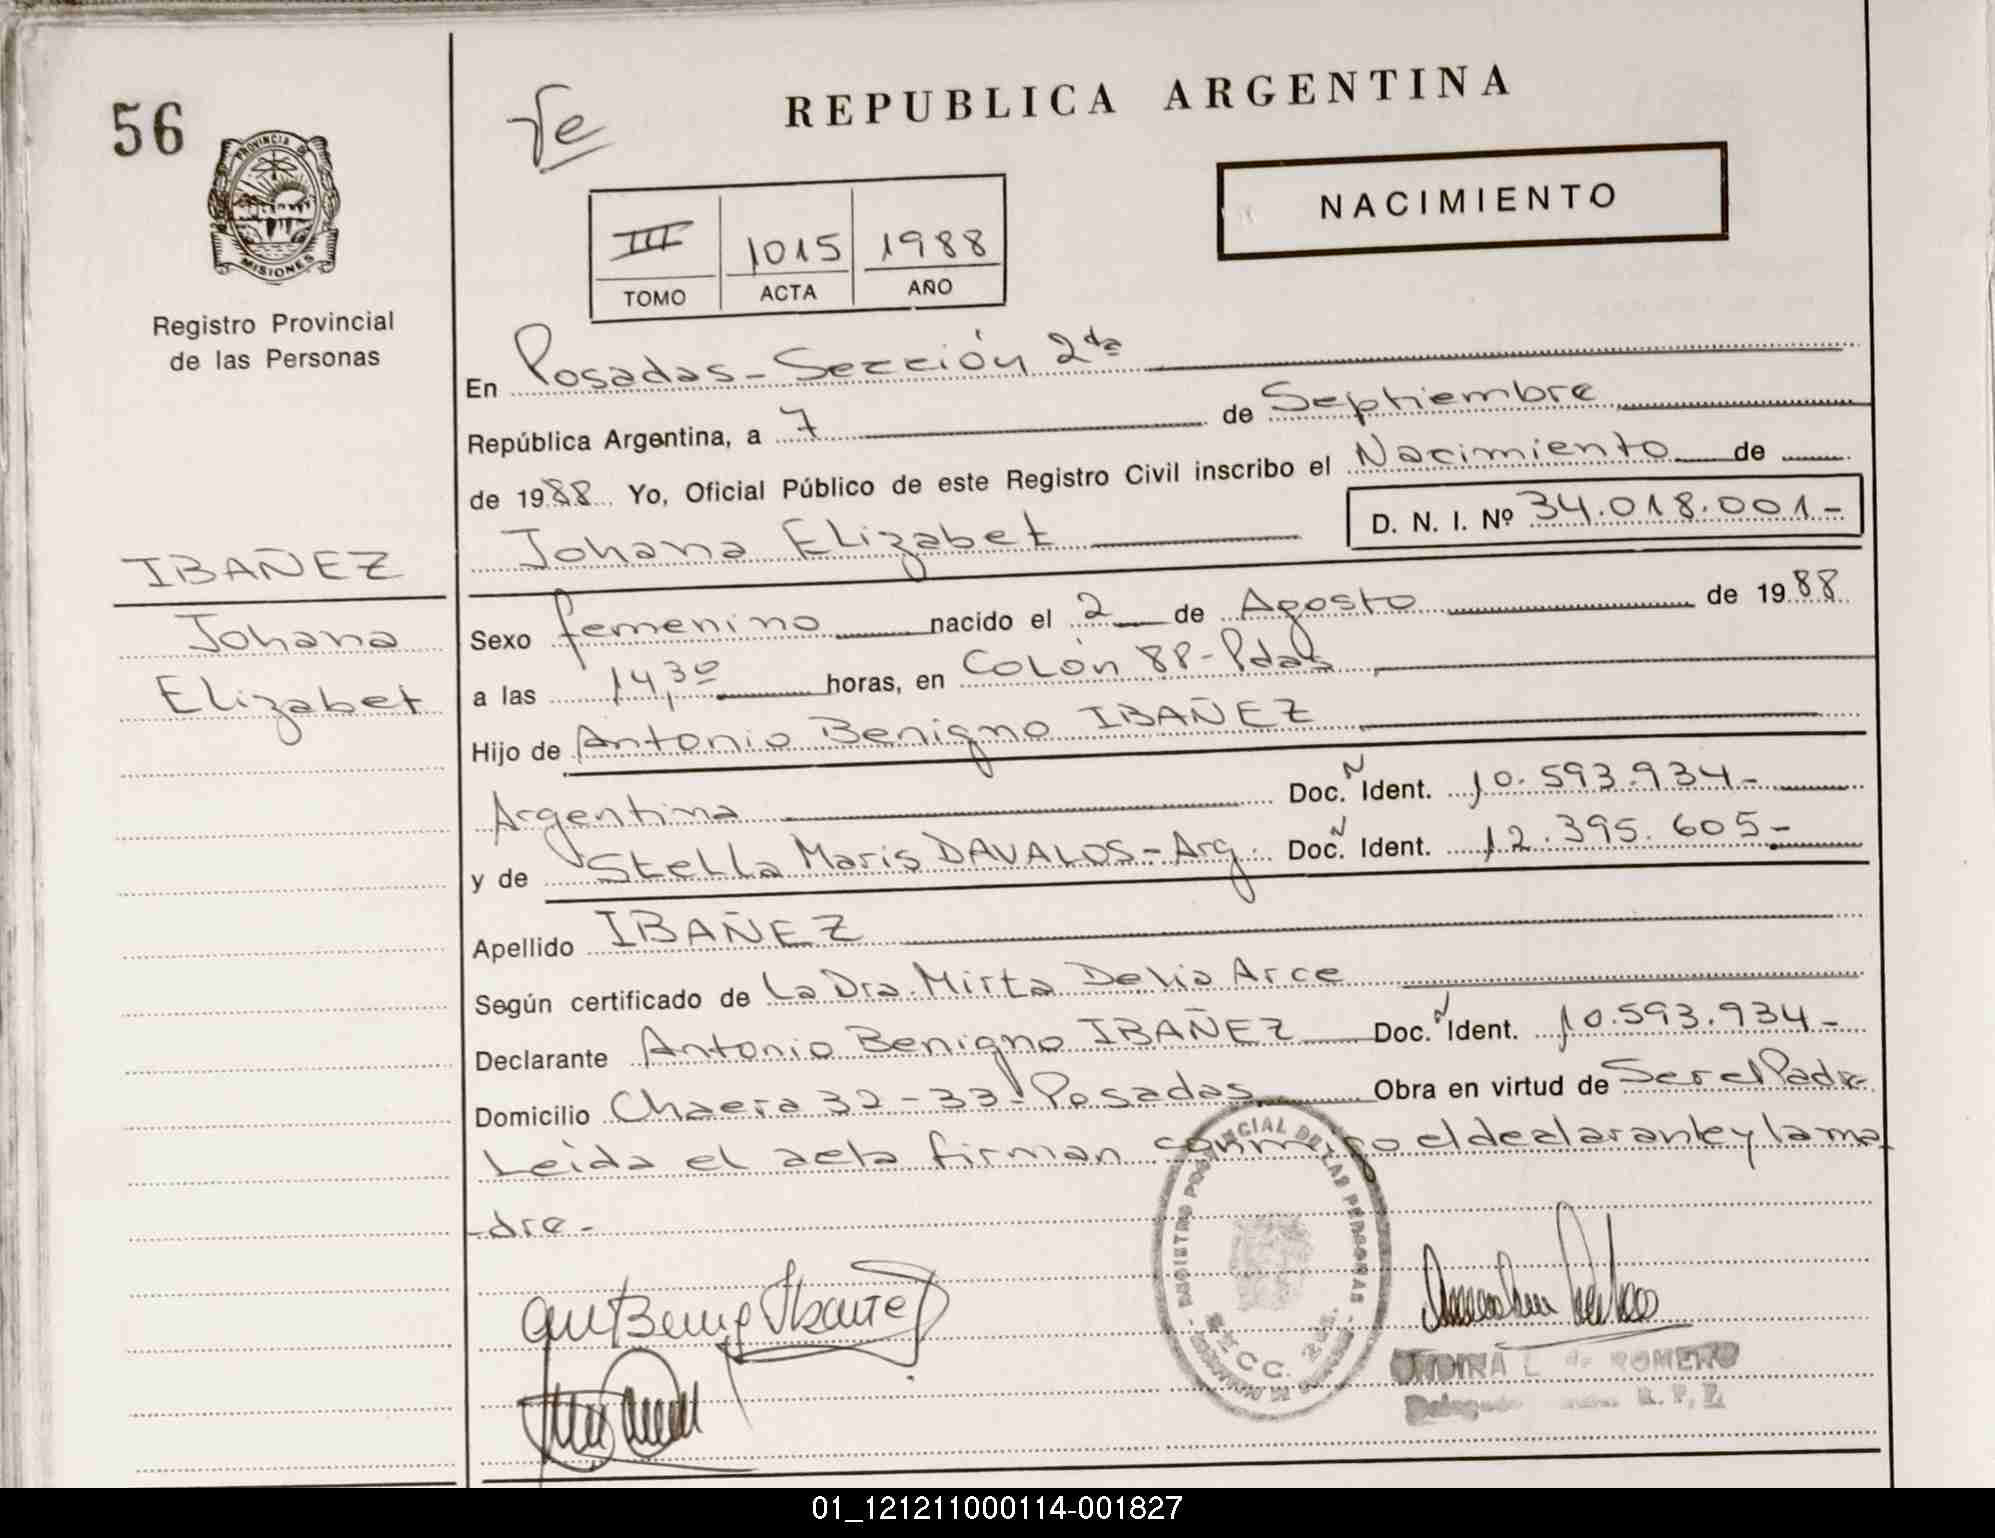 56
REPUBLICA ARGENTINA
NACIMIENTO
PROVINCIA DE
MISIONES
Registro Provincial
de las Personas
III 1015 1988
TOMO ACTA AÑO
En Posadas - Sección 2da
República Argentina, a 7 de Septiembre
de 1988 Yo, Oficial Público de este Registro Civil inscribo el Nacimiento de
Johana Elizabet D. N. I. Nº 34.018.001-
IBAÑEZ
Johana
Elizabet
Sexo femenino nacido el 2 de Agosto de 1988
a las 14,30 horas, en Colón 88 - Pdas
Hijo de Antonio Benigno IBAÑEZ
Argentina Doc. N Ident. 10.593.934-
y de Stella Maris DAVALOS - Arg. Doc. N Ident. 12.395.605-
Apellido IBAÑEZ
Según certificado de La Dra. Mirta Delia Arce
Declarante Antonio Benigno IBAÑEZ Doc. N Ident. 10.593.934-
Domicilio Chacra 32-33- Posadas Obra en virtud de Ser el Padre
Leida el acta firman conmigo el declarante y la ma
dre -
ONDINA L. de ROMERO
01_121211000114-001827